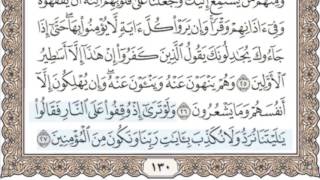 وَمِنْهُم مَّن يَسْتَمِعُ إِلَيْكَ وَجَعَلْنَا عَلَىٰ قُلُوبِهِمْ أَكِنَّةً أَن يَفْقَهُوهُ
وَفِىٓ ءَاذَانِهِمْ وَقْرًا وَإِن يَرَوْا۟ كُلَّ ءَايَةٍ لَّا يُؤْمِنُوا۟ بِهَا حَتَّىٰٓ إِذَا
جَآءُوكَ يُجَٰدِلُونَكَ يَقُولُ ٱلَّذِينَ كَفَرُوٓا۟ إِنْ هَٰذَآ إِلَّآ أَسَٰطِيرُ
ٱلْأَوَّلِينَ ٢٥ وَهُمْ يَنْهَوْنَ عَنْهُ وَيَنْـَٔوْنَ عَنْهُ وَإِن يُهْلِكُونَ إِلَّآ
أَنفُسَهُمْ وَمَا يَشْعُرُونَ ٢٦ وَلَوْ تَرَىٰٓ إِذْ وُقِفُوا۟ عَلَى ٱلنَّارِ فَقَالُوا۟
يَٰلَيْتَنَا نُرَدُّ وَلَا نُكَذِّبَ بِـَٔايَٰتِ رَبِّنَا وَنَكُونَ مِنَ ٱلْمُؤْمِنِينَ ٢٧
١٣٠